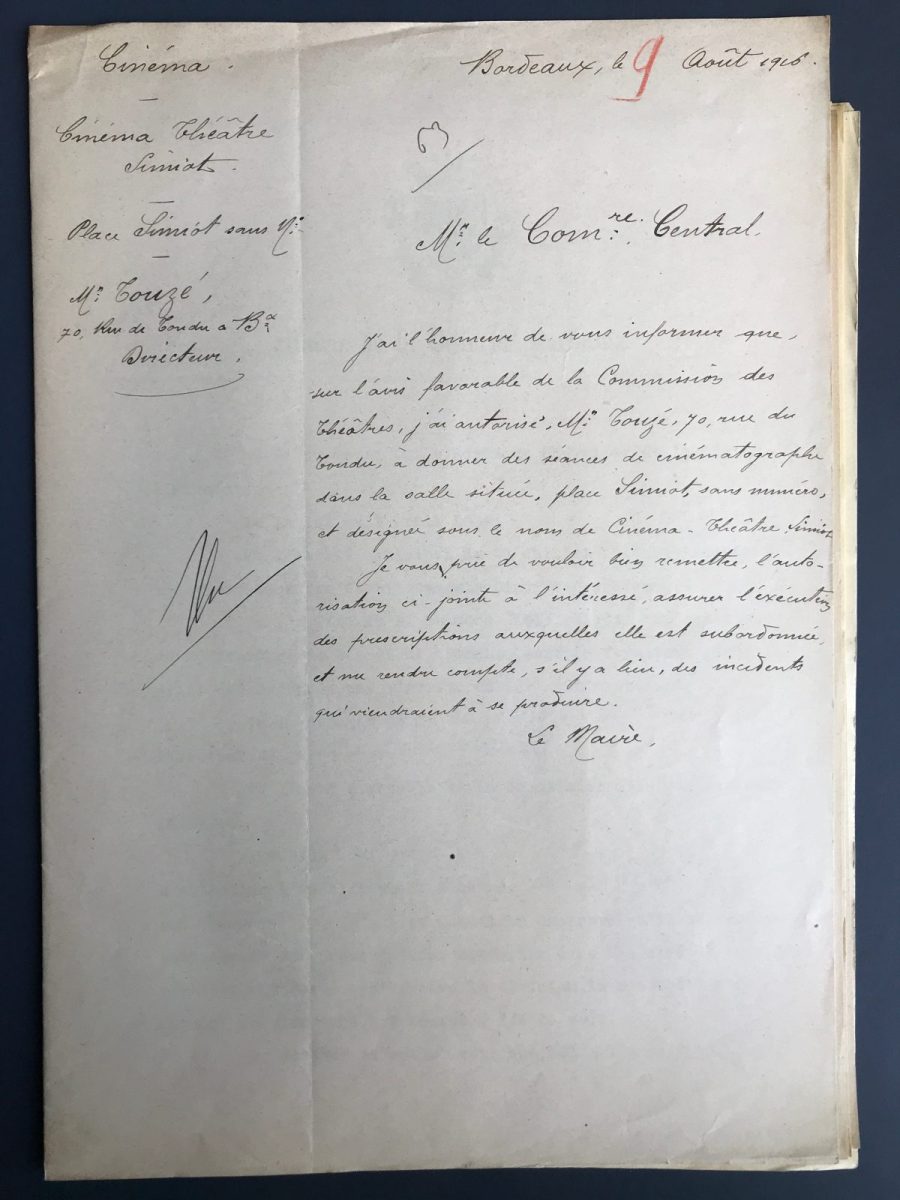 Cinéma.
Cinéma Théâtre
Simiot.
Place Simiot sans No.
Mr. Touzé,
70, Rue de Tondu à Bx
Directeur.
Bordeaux, le 9 Août 1916.
Mr. le Comre. Central.
J'ai l'honneur de vous informer que,
sur l'avis favorable de la Commission des
Théâtres, j'ai autorisé, Mr. Touzé, 70, rue du
Tondu, à donner des séances de cinématographe
dans la salle située, place Simiot, sans numéro,
et désignée sous le nom de Cinéma-Théâtre Simiot
Je vous prie de vouloir bien remettre, l'auto-
risation ci-jointe à l'intéressé, assurer l'exécution
des prescriptions auxquelles elle est subordonnée,
et me rendre compte, s'il y a lieu, des incidents
qui viendraient à se produire.
Le Maire,